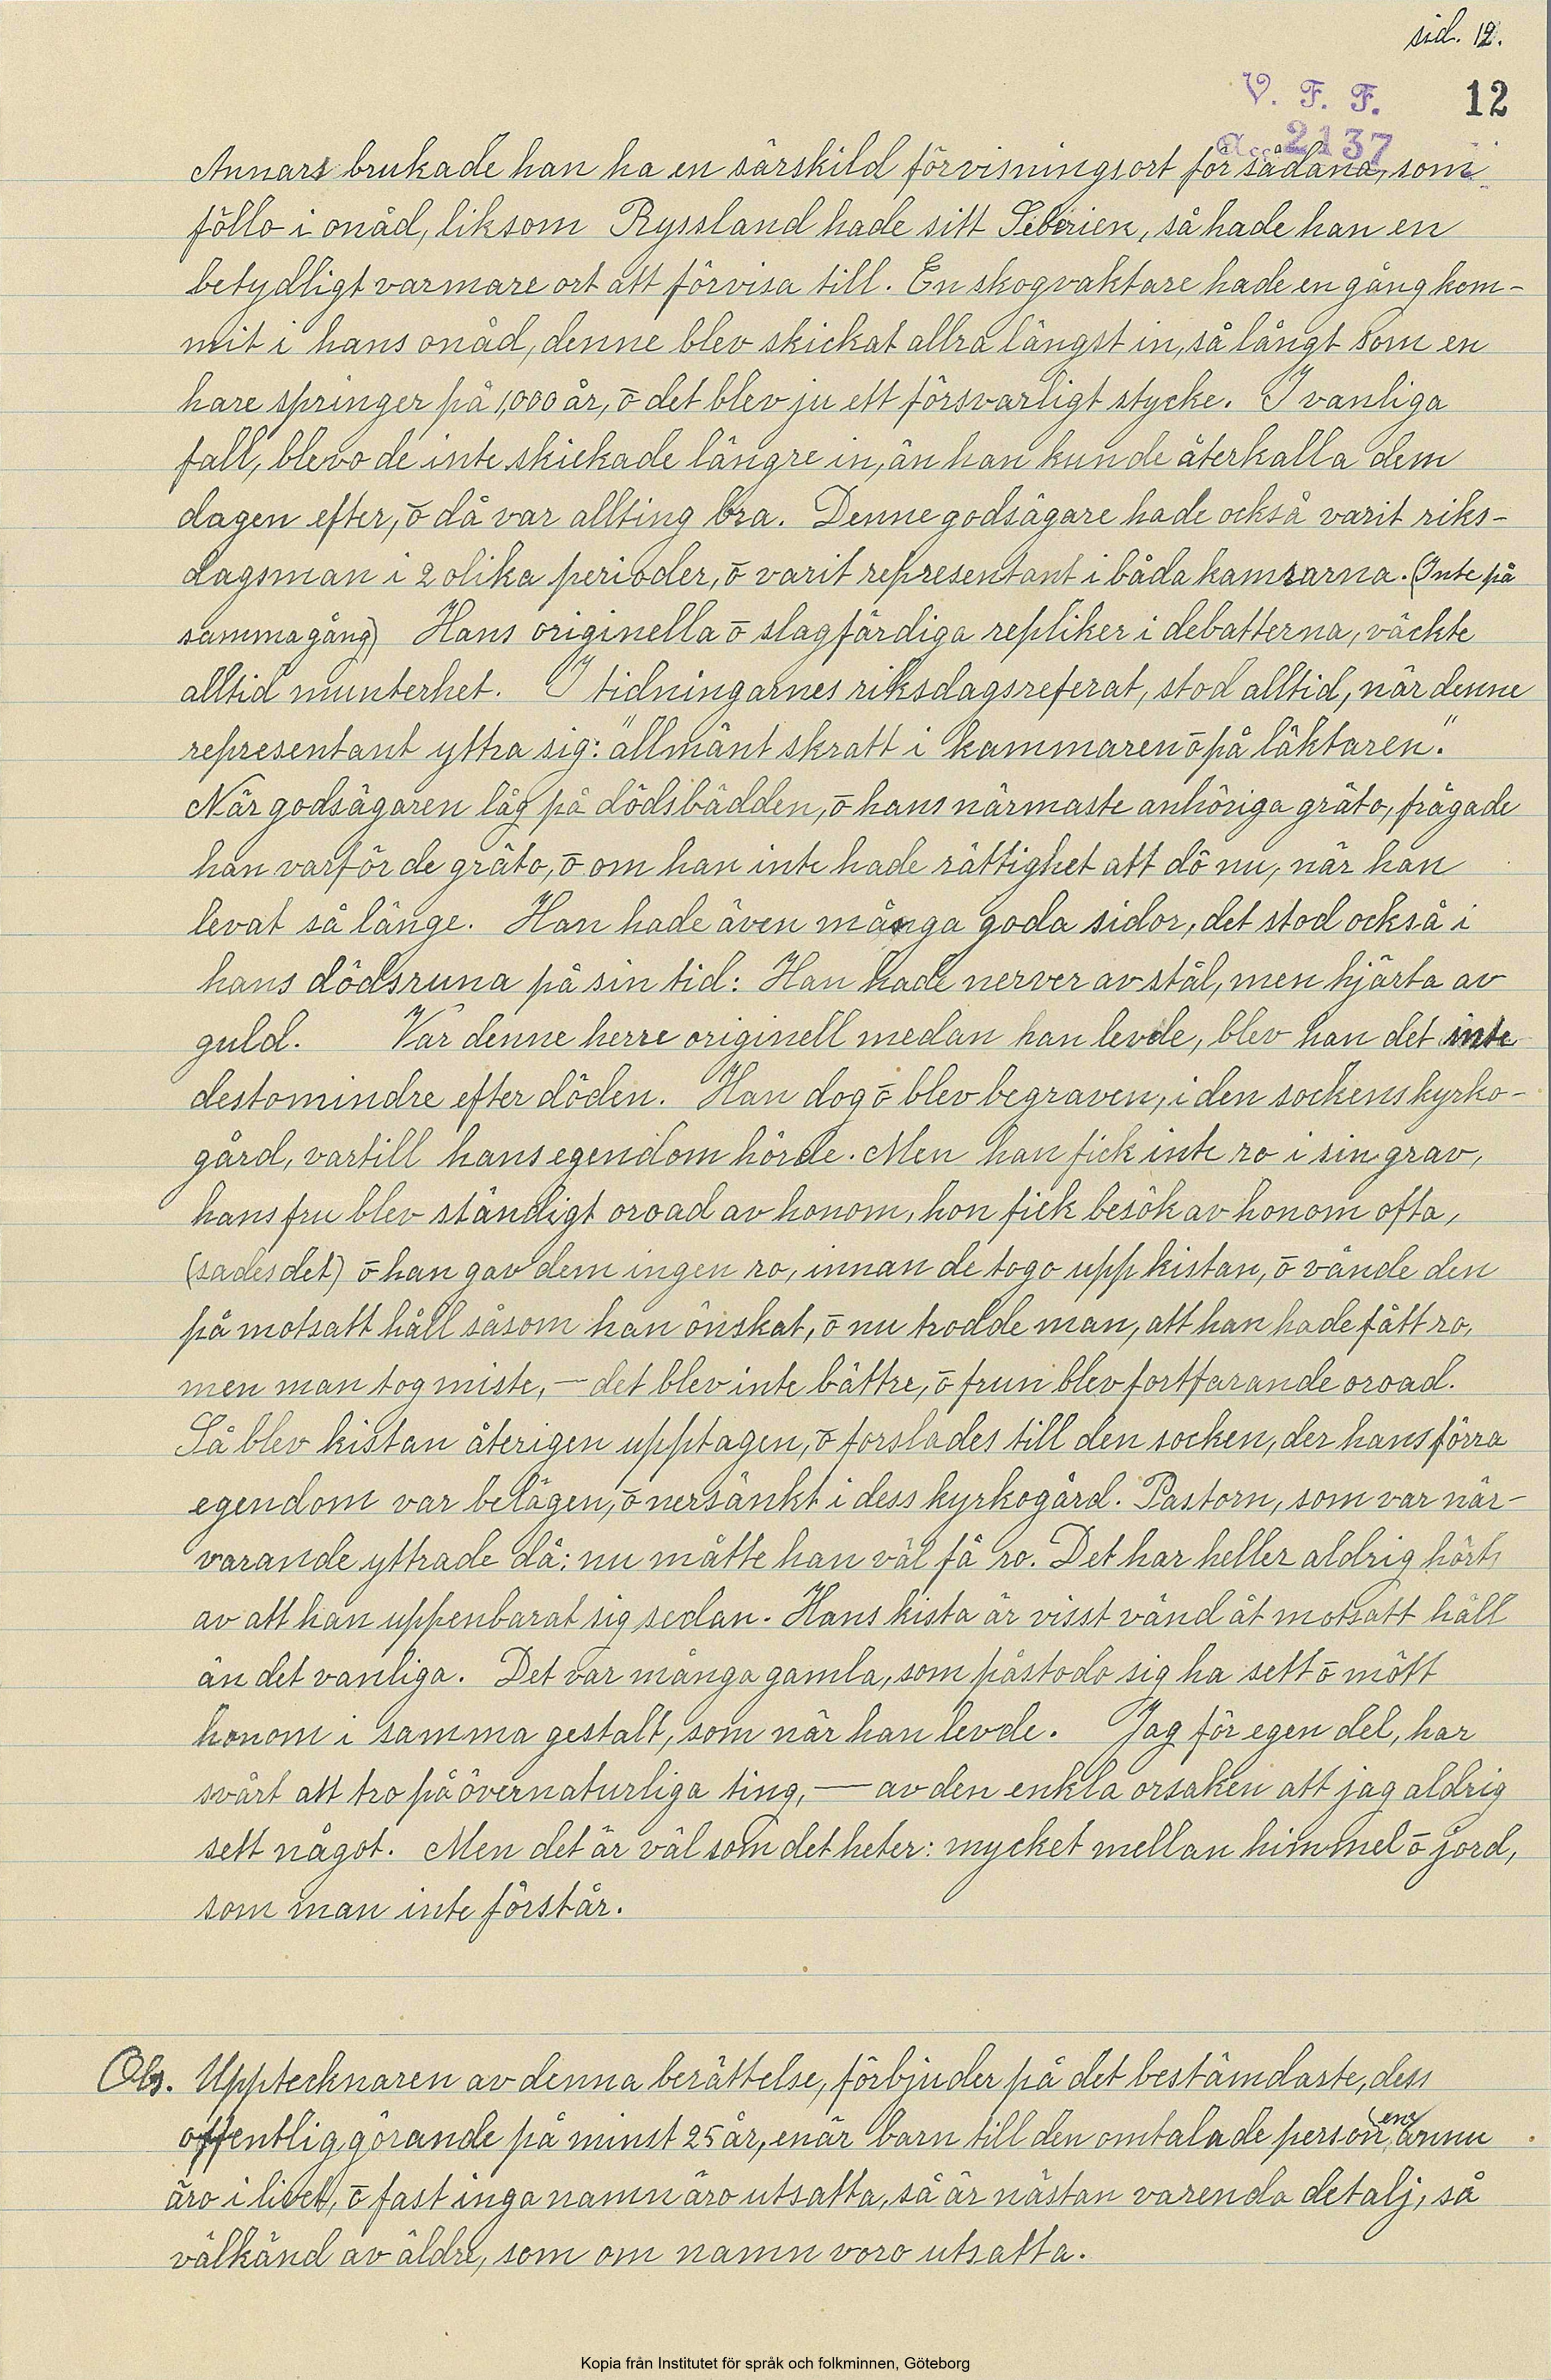 sid. 12.
V. F. F. 12
Acc. 2137
Annars brukade han ha en särskild förvisningsort för sådana, som
föllo i onåd, liksom Ryssland hade sitt Siberien, så hade han en
betydligt varmare ort att förvisa till. En skogvaktare hade en gång kom-
mit i hans onåd, denne blev skickat allra längst in, så långt som en
hare springer på 1,000 år, ō det blev ju ett försvarligt stycke. I vanliga
fall, blevo de inte skickade längre in, än han kunde återkalla dem
dagen efter, ō då var allting bra. Denne godsägare hade också varit riks-
dagsman i 2 olika perioder, ō varit representant i båda kamrarna. (Inte på
samma gång) Hans originella ō slagfärdiga repliker i debatterna, väckte
alltid munterhet. I tidningarnes riksdagsreferat, stod alltid, när denne
representant yttra sig: "allmänt skratt i kammaren ō på läktaren."
När godsägaren låg på dödsbädden, ō hans närmaste anhöriga gräto, frågade
han varför de gräto, ō om han inte hade rättighet att dö nu, när han
levat så länge. Han hade även många goda sidor, det stod också i
hans dödsruna på sin tid: Han hade nerver av stål, men hjärta av
guld. Var denne herre originell medan han levde, blev han det inte
destomindre efter döden. Han dog ō blev begraven, i den sockens kyrko-
gård, vartill hans egendom hörde. Men han fick inte ro i sin grav,
hans fru blev ständigt oroad av honom, hon fick besök av honom ofta,
(sades det) ō han gav dem ingen ro, innan de togo upp kistan, ō vände den
på motsatt håll såsom han önskat, ō nu trodde man, att han hade fått ro,
men man tog miste, — det blev inte bättre, ō frun blev fortfarande oroad.
Så blev kistan återigen upptagen, ō forslades till den socken, der hans förra
egendom var belägen, ō nersänkt i dess kyrkogård. Pastorn, som var när-
varande yttrade då: nu måtte han väl få ro. Det har heller aldrig hörts
av att han uppenbarat sig sedan. Hans kista är visst vänd åt motsatt håll
än det vanliga. Det var många gamla, som påstodo sig ha sett ō mött
honom i samma gestalt, som när han levde. Jag för egen del, har
svårt att tro på övernaturliga ting, — av den enkla orsaken att jag aldrig
sett något. Men det är väl som det heter: mycket mellan himmel ō jord,
som man inte förstår.
Obs. Upptecknaren av denna berättelse, förbjuder på det bestämdaste, dess
offentliggörande på minst 25 år, enär barn till den omtalade personen, ännu
äro i livet, ō fast inga namn äro utsatta, så är nästan varenda detalj, så
välkänd av äldre, som om namn voro utsatta.
Kopia från Institutet för språk och folkminnen, Göteborg